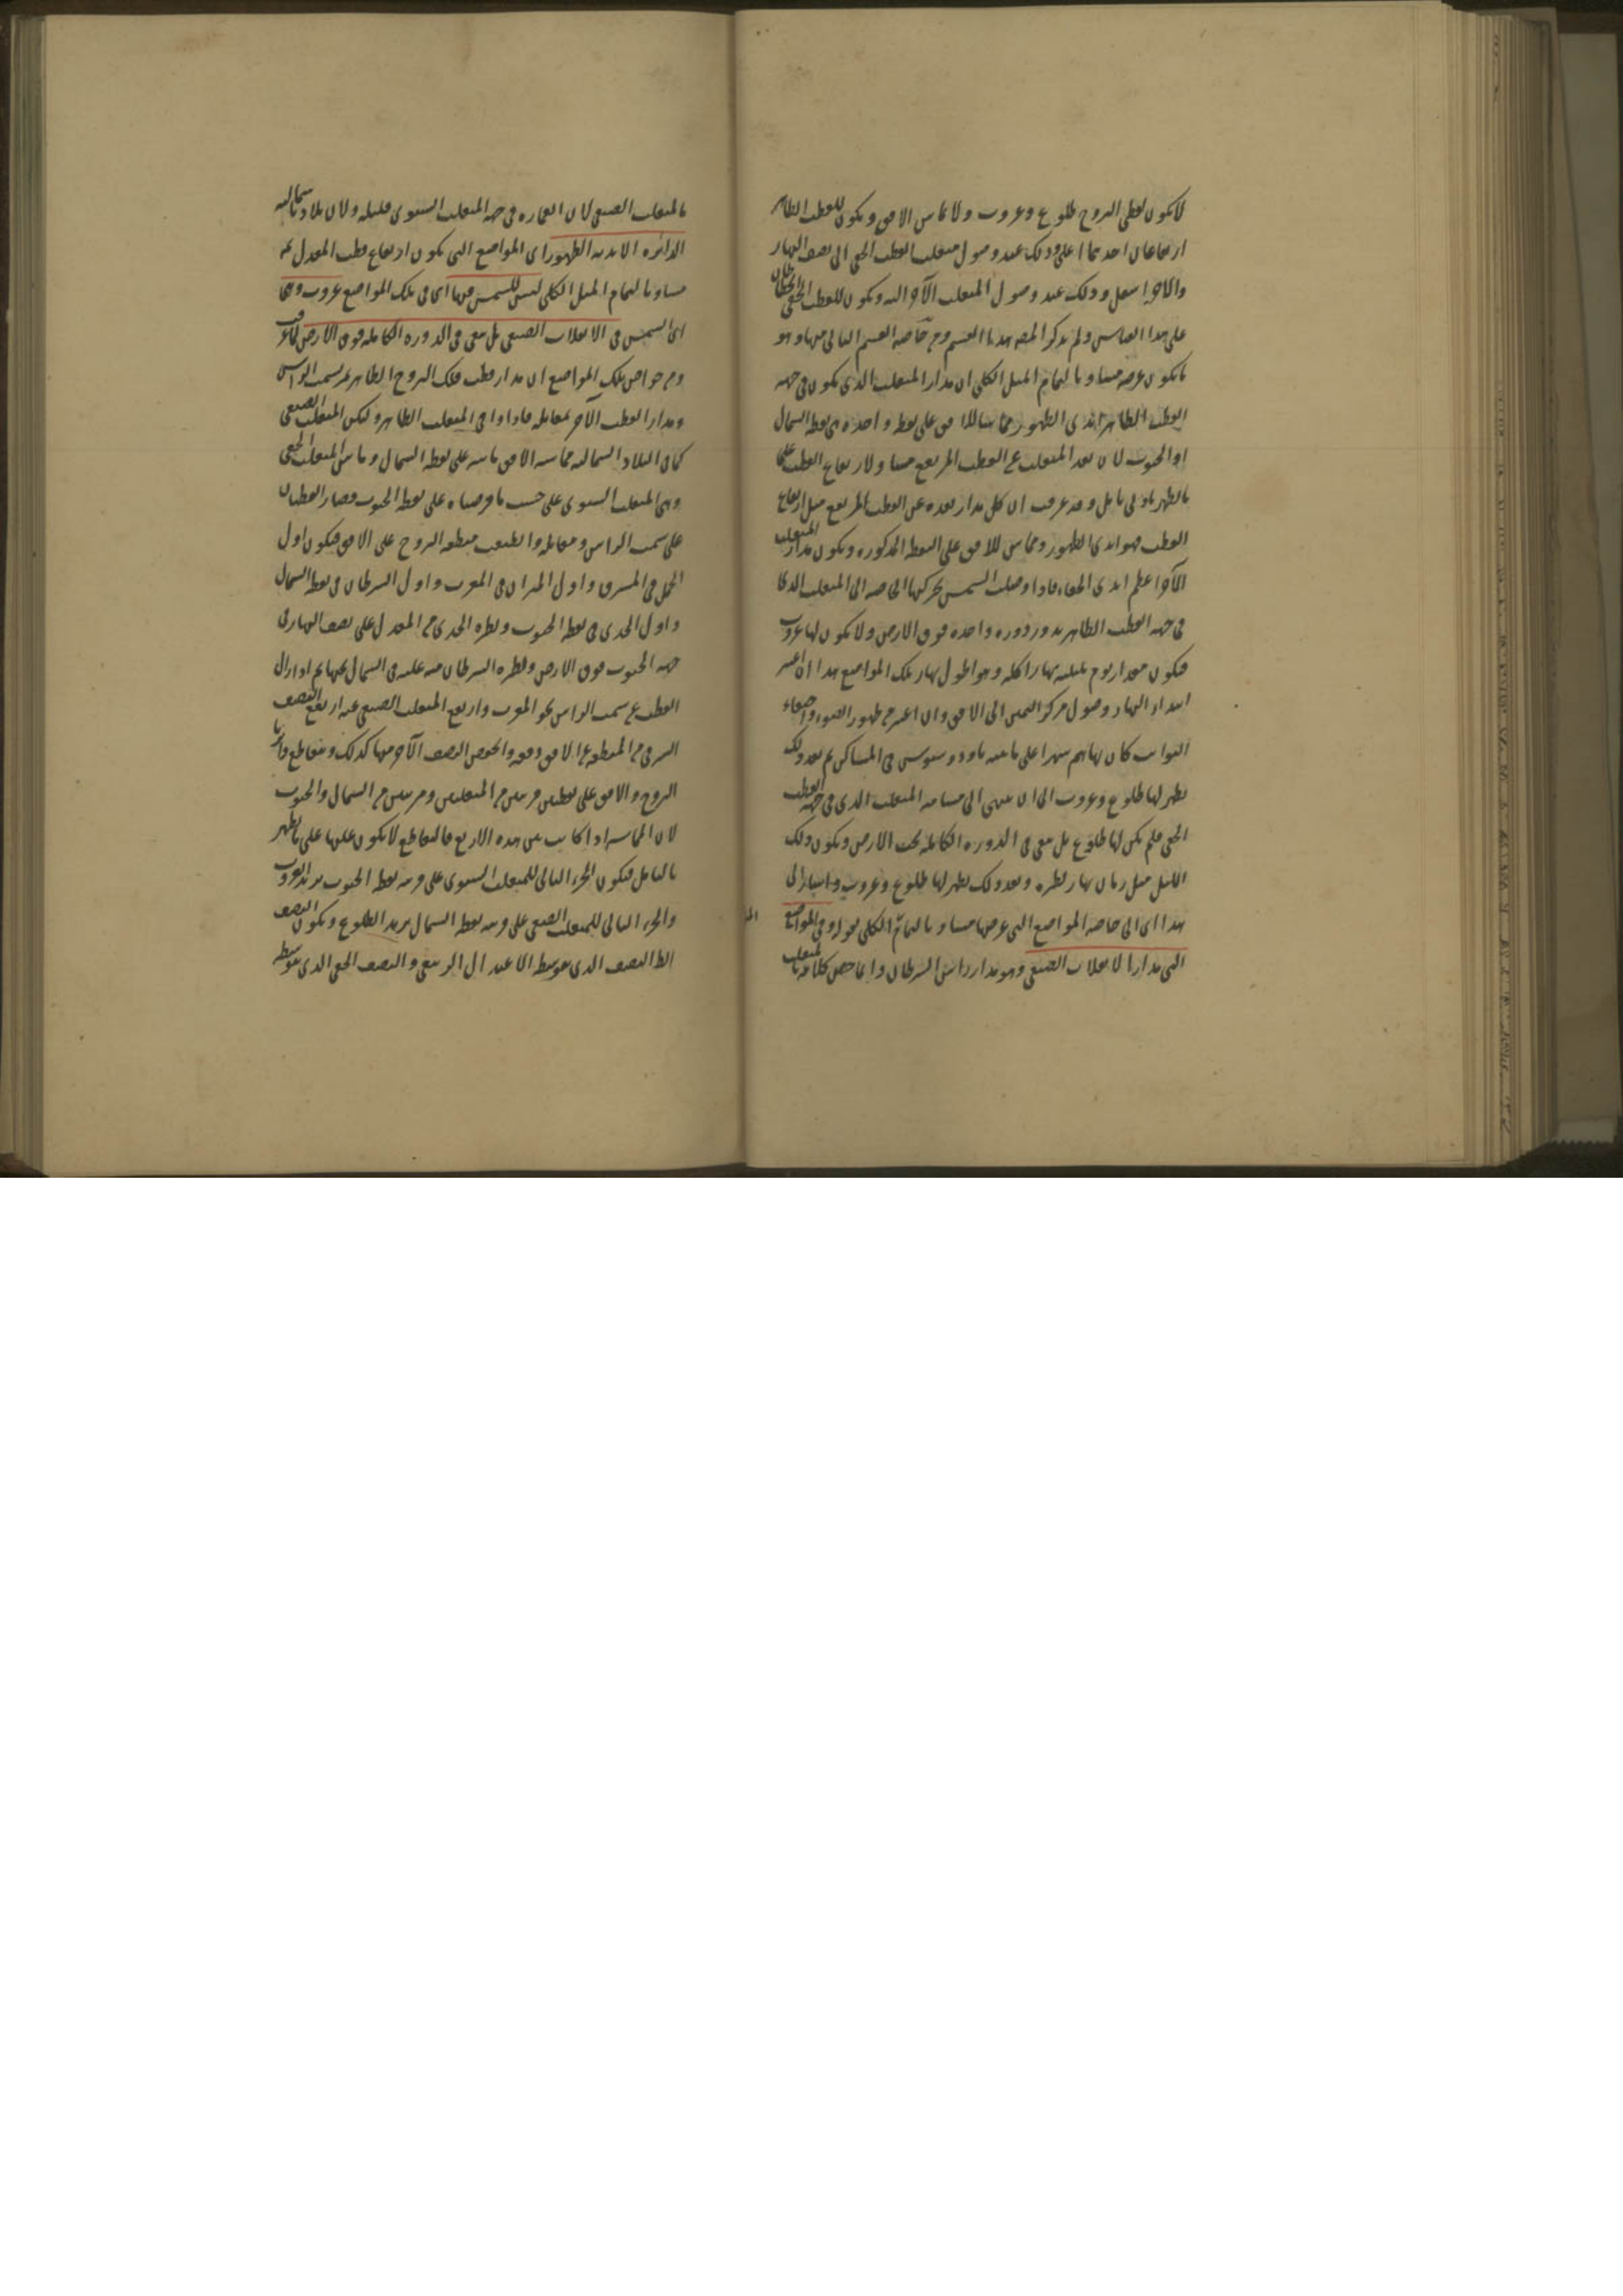 لا يكون لقطبي البروج طلوع وغروب ولا يماس الافق ويكون للقطب الظاهر
ارتفاعان احدهما اعلى وذلك عند وصول منقلب القطب الخفي الى نصف النهار
والآخر اسفل وذلك عند وصول المنقلب الآخر اليه ويكون للقطب الخفي انحطاطان
على هذا القياس ولم يذكر المصه هذا القسم ومن خاصة القسم الثالث منها وهو
ما يكون عرضه مساويا لتمام الميل الكلي ان مدار المنقلب الذي يكون في جهة
القطب الظاهر ابدي الظهور مماسا للافق على نقطة واحدة هي نقطة الشمال
او الجنوب لان بعد المنقلب عن القطب المرتفع مساو لارتفاع القطب على
ما يظهر بادنى تامل وقد عرفت ان كل مدار بعده عن القطب المرتفع مثل ارتفاع
القطب فهو ابدي الظهور ومماس للافق على النقطة المذكورة ويكون مدار المنقلب
الآخر اعظم ابدي الخفاء فاذا وصلت الشمس بحركتها الخاصة الى المنقلب الذي
في جهة القطب الظاهر يدور دورة واحدة فوق الارض ولا يكون لها غروب
فيكون مقدار يوم بليلته نهارا كله وهو اطول نهار تلك المواضع هذا ان اعتبر
ابتداء النهار وصول مركز الشمس الى الافق وان اعتبر من ظهور الضوء واختفاء
الثوابت كان نهارهم شهرا على ما بينه ثاودوسيوس في المساكن ثم بعد ذلك
يظهر لها طلوع وغروب الى ان ينتهي الى مسامتة المنقلب الذي في جهة القطب
الخفي فلم يكن لها طلوع بل تبقى في الدورة الكاملة تحت الارض ويكون ذلك
الليل مثل زمان نهار نظيره وبعد ذلك يظهر لها طلوع وغروب واشار الى
هذا اي الى خاصة المواضع التي عرضها مساو لتمام الكلي بقوله وفي المواضع
التي مدار الانقلاب الصيفي وهو مدار راس السرطان وانما خص كلامه
بالمنقلب الصيفي لان العمارة في جهة المنقلب الشتوي قليلة ولان بلادنا شمالية
الدائرة الابدية الظهور اي المواضع التي يكون ارتفاع قطب المعدل
مساويا لتمام الميل الكلي ليس للشمس فيها اي في تلك المواضع غروب وهي
اي الشمس في الانقلاب الصيفي بل تبقى في الدورة الكاملة فوق الارض كما عرفت
ومن خواص تلك المواضع ان مدار قطب فلك البروج الظاهر يمر بسمت الراس
ومدار القطب الآخر بمقابله فاذا وافى المنقلب الظاهر وليكن المنقلب الصيفي
كما في البلاد الشمالية مماسة الافق ماسه على نقطة الشمال وماس المنقلب الخفي
وهي المنقلب الشتوي على حسب ما فرضناه على نقطة الجنوب وصار القطبان
على سمت الراس ومقابله وانطبقت منطقة البروج على الافق فيكون اول
الحمل في المشرق واول الميزان في المغرب واول السرطان في نقطة الشمال
واول الجدي في نقطة الجنوب ونظيرة الجدي من المعدل على نصف النهار في
جهة الجنوب فوق الارض ونظيرة السرطان منه عليه في الشمال تحتها ثم اذا زال
القطب عن سمت الراس نحو المغرب وارتفع المنقلب الصيفي عنه ارتفع النصف
الشرقي من المنطقة عن الافق دفعة وانخفض النصف الآخر منها كذلك وتتقاطع دائرتا
البروج والافق على نقطتين قريبتين من المنقلبين وقريبتين من الشمال والجنوب
لان المماسة اذا كانت بين هذه الاربع فالتقاطع لا يكون عليها على ما يظهر
بالتامل فيكون الجزء التالي للمنقلب الشتوي على قرب نقطة الجنوب يريد الغروب
والجزء التالي للمنقلب الصيفي على قرب نقطة الشمال يريد الطلوع ويكون النصف
الظ النصف الذي يتوسطه الاعتدال الربيعي والنصف الخفي الذي يتوسطه